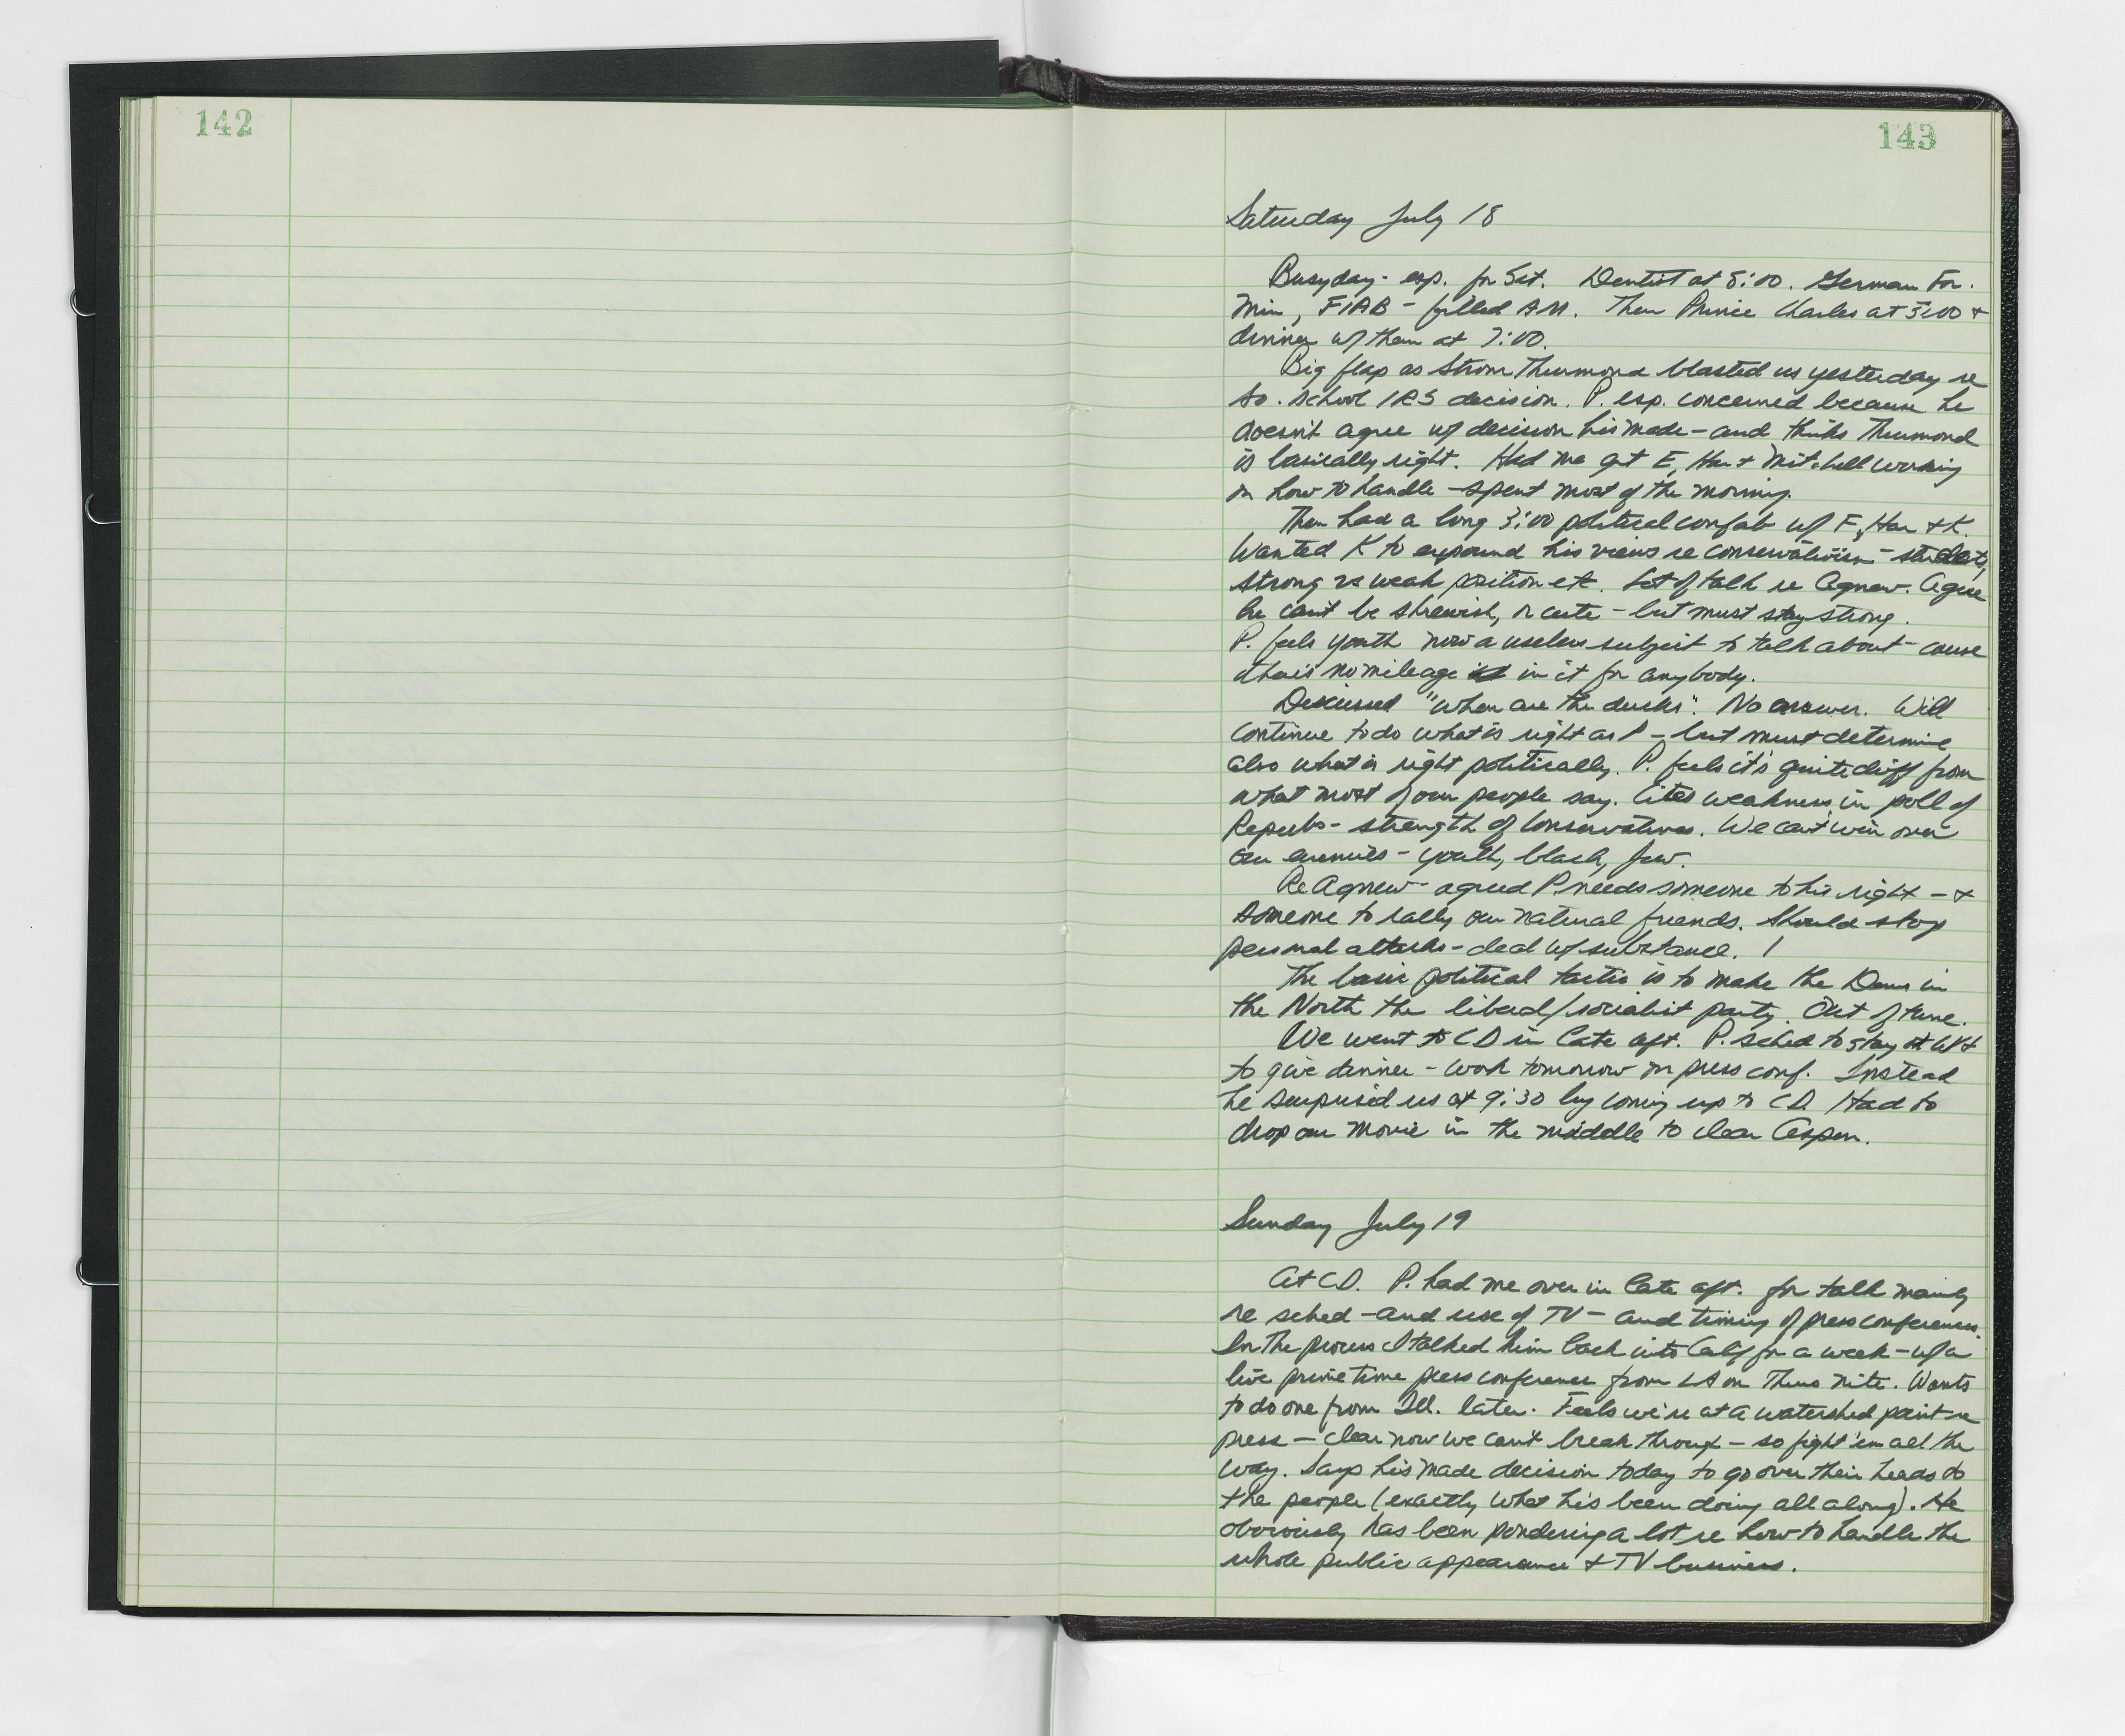 142
143
Saturday July 18
Busy day - esp. for Sat. Dentist at 8:00. German For.
Min, FIAB - filled AM. Then Prince Charles at 5:00 +
dinner w/ them at 7:00.
Big flap as Strom Thurmond blasted us yesterday re
So. school IRS decision. P. esp. concerned because he
doesn't agree w/ decision he's made - and thinks Thurmond
is basically right. Had me get E, Har + Mitchell working
on how to handle - spent most of the morning.
Then had a long 3:00 political confab w/ F, Har + K.
Wanted K to expound his views re conservativism - students,
strong vs weak position etc. Lot of talk re Agnew. Agree
he can't be shrewish, or cute - but must stay strong.
P. feels youth now a useless subject to talk about - cause
there's no mileage in it for anybody.
Discussed "where are the ducks". No answer. Will
continue to do what is right as P - but must determine
also what is right politically. P. feels it's quite diff from
what most of our people say. Cites weakness in poll of
Repubs - strength of Conservatives. We can't win over
our enemies - youth, black, Jew.
Re Agnew - agreed P needs someone to his right - +
someone to rally our natural friends. Should stop
personal attacks - deal w/ substance.
The basic political tactic is to make the Dems in
the North the liberal/socialist party. Out of tune.
We went to CD in late aft. P. sched to stay at WH
to give dinner - work tomorrow on press conf. Instead
he surprised us at 9:30 by coming up to CD. Had to
drop our movie in the middle to clear Aspen.
Sunday July 19
At CD. P. had me over in late aft. for talk mainly
re sched - and use of TV - and timing of press conferences.
In the process I talked him back into Calif for a week - w/ a
live prime time press conference from LA on Thurs nite. Wants
to do one from Ill. later. Feels we're at a watershed point re
press - clear now we can't break through - so fight 'em all the
way. Says he's made decision today to go over their heads to
the people (exactly what he's been doing all along). He
obviously has been pondering a lot re how to handle the
whole public appearance + TV business.